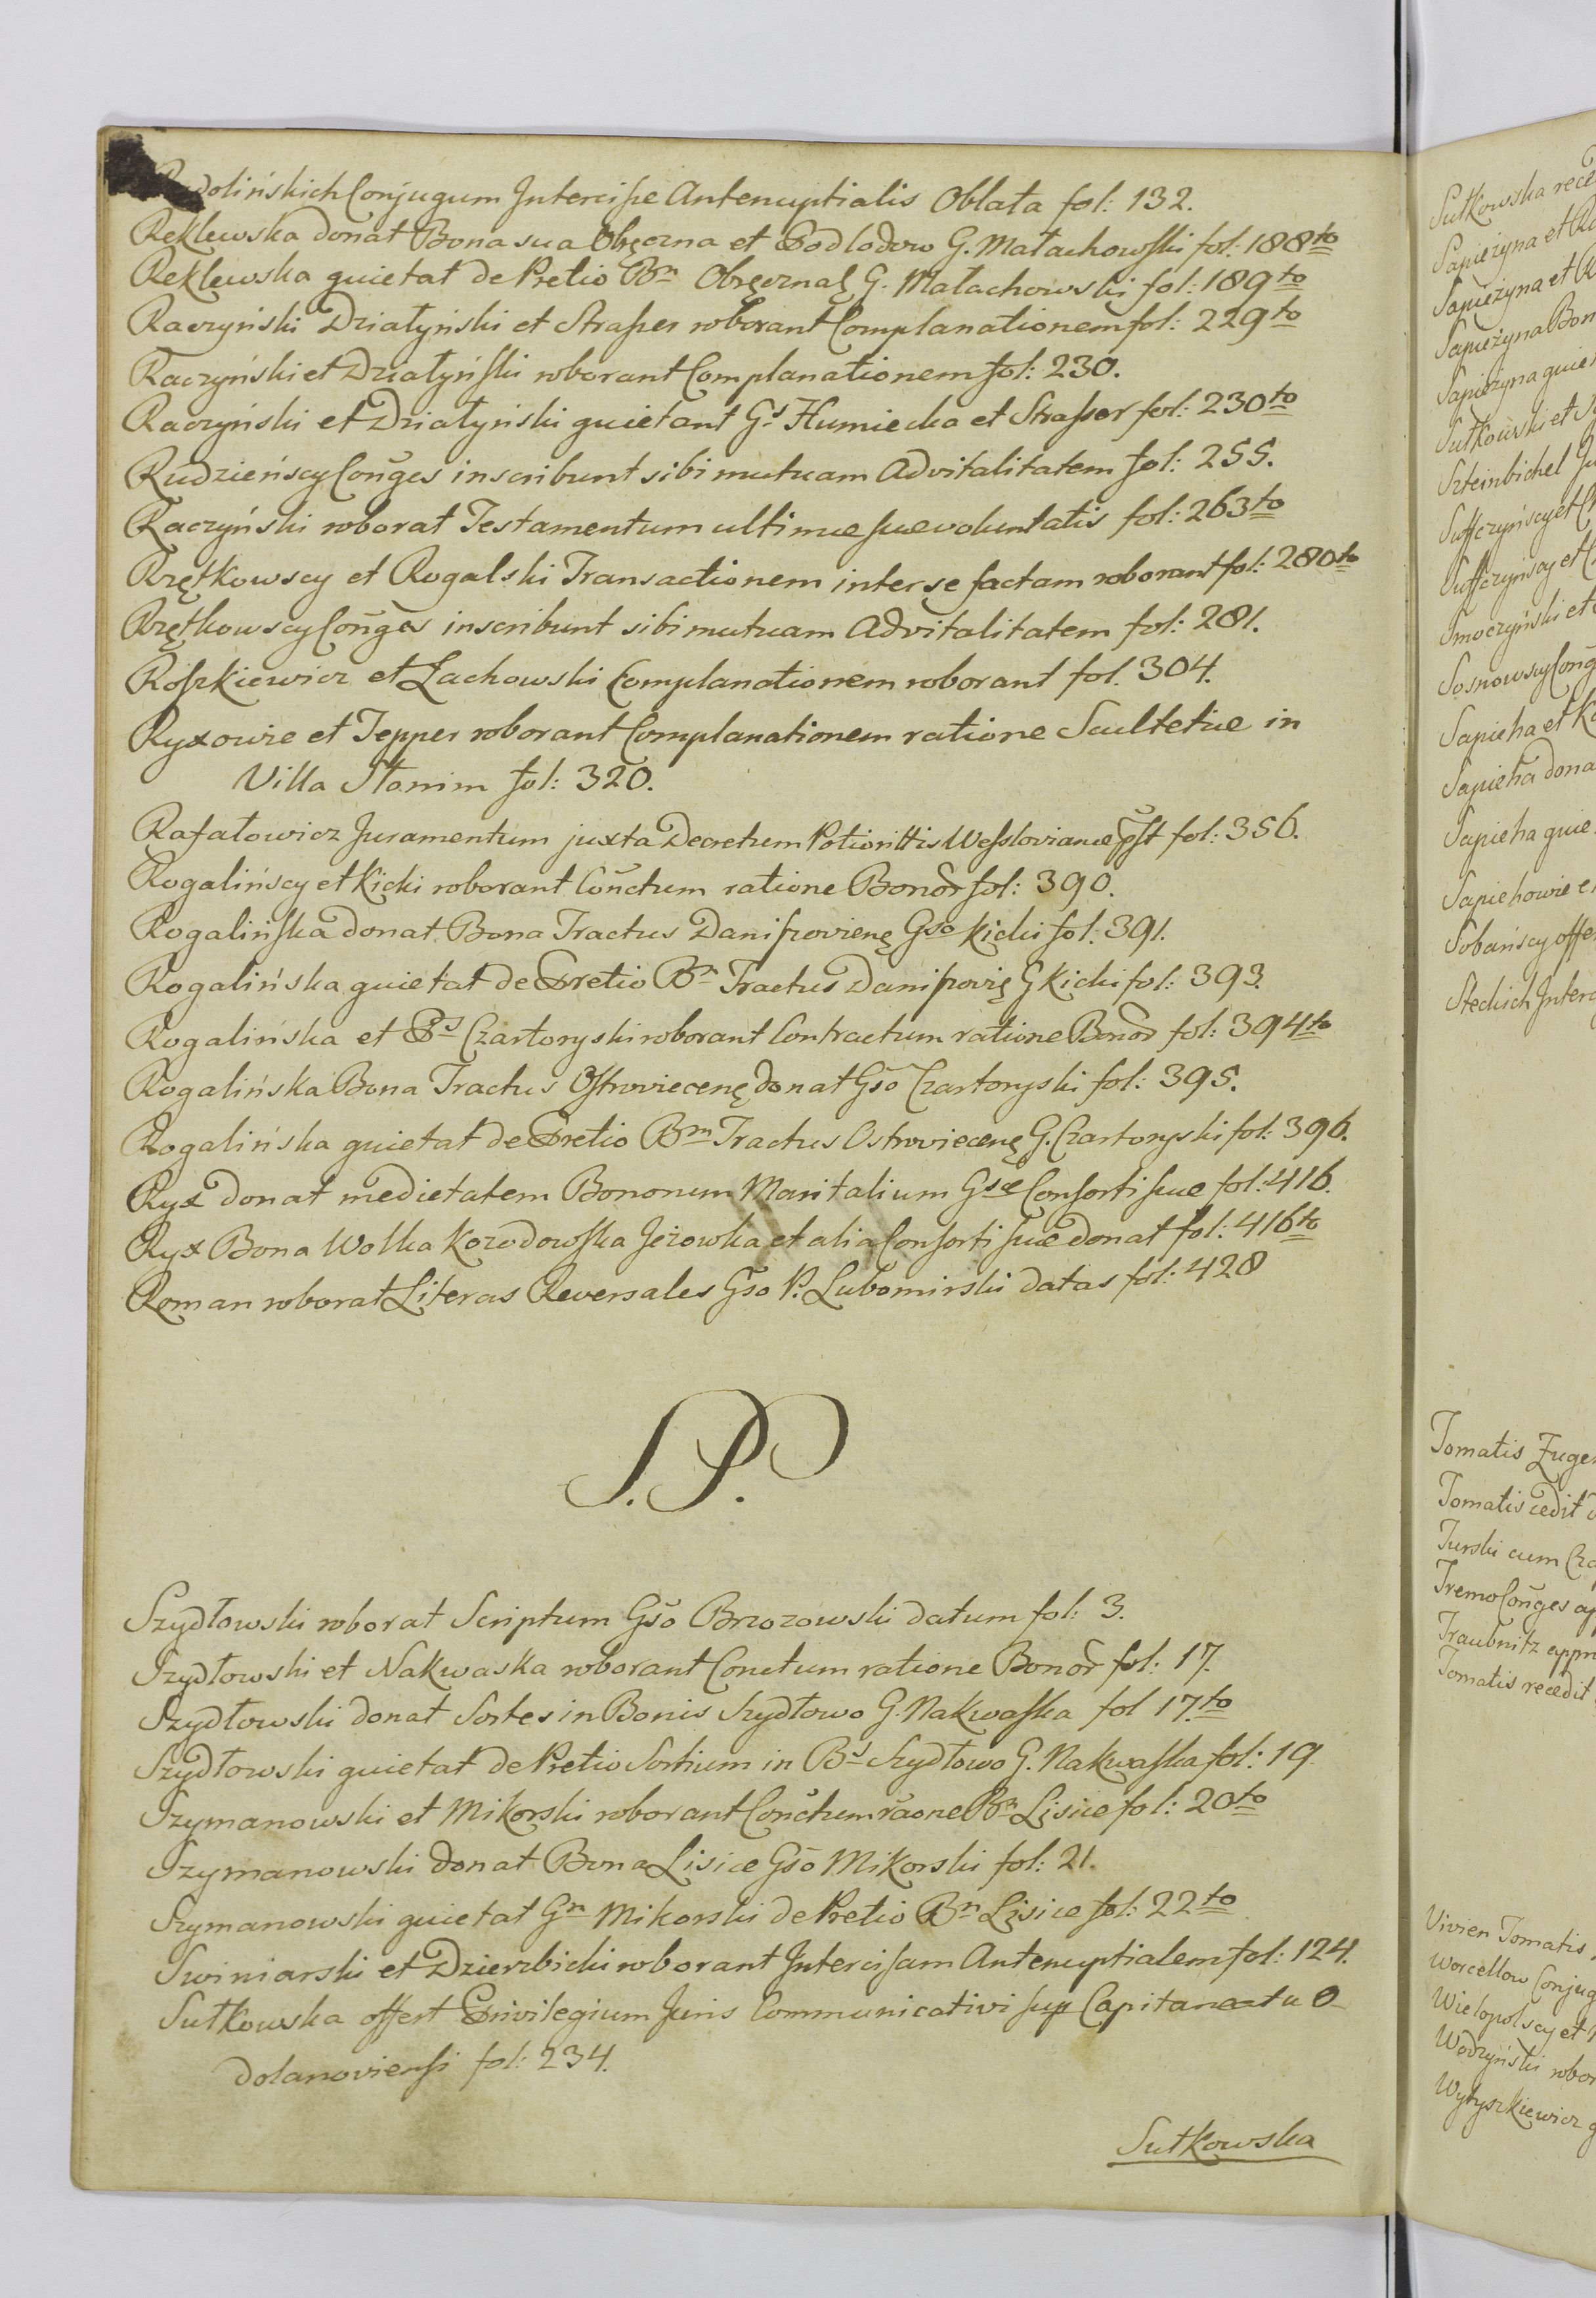 dolińskich Conjugum Intercisæ Antenuptialis Oblata fol: 132.
Reklewska donat Bona sua Obręczna et Podlodow G. Małachowski fol: 188to
Reklewska quietat de Pretio Bn Obręczna G. Małachowski fol: 189to
Raczyński Działyński et Strasser roborant Complanationem fol: 229to
Raczyński et Działyński roborant Complanationem fol: 230.
Raczyński et Działyński quietant Gs Humiecka et Strasser fol: 230to
Rudzieńscy Conges inscribunt sibi mutuam Advitalitatem fol: 255.
Raczyński roborat Testamentum ultimæ suæ voluntatis fol: 263to
Rzętkowscy et Rogalski Transactionem inter se factam roborant fol: 280to
Rzętkowscy Conges inscribunt sibi mutuam Advitalitatem fol: 281.
Roszkiewicz et Lachowski Complanationem roborant fol. 304.
Ryxowie et Tepper roborant Complanationem ratione Scultetiæ in
Villa Słomim fol: 320.
Rafałowicz Juramentum juxta Decretum Potiorittis Wesslovianæ pst fol: 356.
Rogalińscy et Kicki roborant Conctum ratione Bonor fol: 390.
Rogalińska donat Bona Tractus Daniszovienę Gso Kicki fol: 391.
Rogalińska quietat de Pretio Bn Tractus Daniszovię G Kicki fol: 393.
Rogalińska et Ps Czartoryski roborant Contractum ratione Bonor fol: 394to
Rogalińska Bona Tractus Ostroviecenę donat Gso Czartoryski fol: 395.
Rogalińska quietat de Pretio Bm Tractus Ostroviecenę G. Czartoryski fol: 396.
Ryx donat medietatem Bonorum Maritalium Gsæ Consorti suæ fol: 416.
Ryx Bona Wolka Kozodowska Jeżowka et alia Consorti suæ donat fol: 416to
Roman roborat Literas Reversales Gso P. Lubomirski datas fol: 428
S. P.
Szydłowski roborat Scriptum Gso Brzozowski datum fol: 3.
Szydłowski et Nakwaska roborant Conctum ratione Bonor fol: 17.
Szydłowski donat Sortes in Bonis Szydłowo G. Nakwaska fol 17to
Szydłowski quietat de Pretio Sortium in Bs Szydłowo G. Nakwaska fol: 19.
Szymanowski et Mikorski roborant Conctum raone Bn Lisice fol: 20to
Szymanowski donat Bona Lisice Gso Mikorski fol: 21.
Szymanowski quietat Gn Mikorski de Pretio Bn Lisice fol: 22to
Swiniarski et Dzierzbicki roborant Intercisam Antenuptialem fol: 124.
Sułkowska offert Privilegium Juris Communicativi sup Capitaneatu O-
dolanoviensi fol: 234.
Sułkowska
Sułkowska
Sapieżyna et
Sapieżyna et
Sapieżyna Bon
Sapieżyna
Sułkowski et
Szteinbichel
Suffczyńscy et
Suffczyńscy et
Smoczyński et
Sosnowscy
Sapieha et
Sapieha dona
Sapieha
Sapiehowie
Sobańscy
Steckich
Tomatis
Tomatis cedit
Turski cum
Tremo Conges
Traubnitz
Tomatis recedit
Vivien Tomatis
Worcellow Conjug
Wielopolscy et
Wodzyński